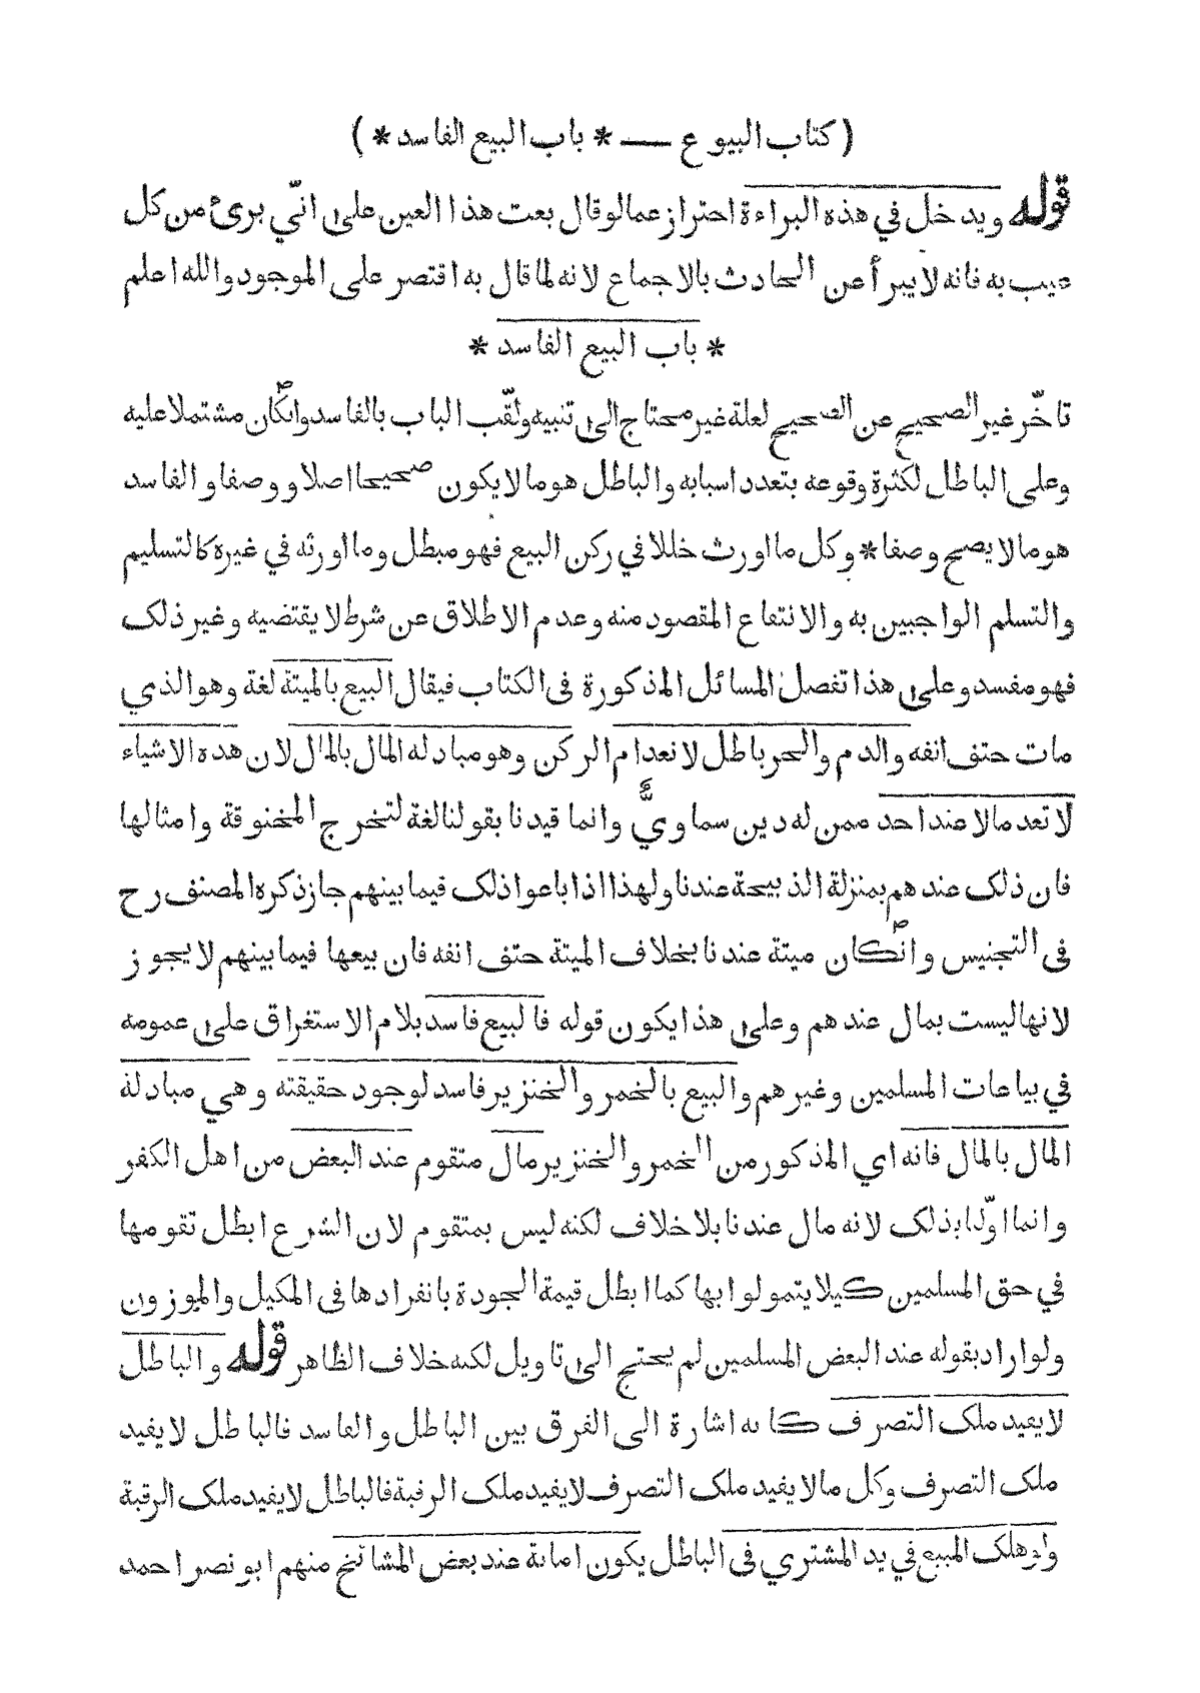 ( كتاب البيوع — * باب البيع الفاسد * )
قوله ويدخل في هذه البراءة احتراز عمالو قال بعت هذا العين على انّي برئ من كل
عيب به فانه لا يبرأ عن الحادث بالاجماع لانه لما قال به اقتصر على الموجود والله اعلم
* باب البيع الفاسد *
تاخّر غير الصحيح عن الصحيح لعلة غير محتاج الى تنبيه ولقّب الباب بالفاسد وانكان مشتملا عليه
وعلى الباطل لكثرة وقوعه بتعدد اسبابه والباطل هو ما لا يكون صحيحا اصلا ووصفا والفاسد
هو ما لا يصح وصفا * وكل ما اورث خللا في ركن البيع فهو مبطل وما اورثه في غيره كالتسليم
والتسلم الواجبين به والانتفاع المقصود منه وعدم الاطلاق عن شرط لا يقتضيه وغير ذلك
فهو مفسد وعلى هذا تفصل المسائل المذكورة في الكتاب فيقال البيع بالميتة لغة وهو الذي
مات حتف انفه والدم والحر باطل لانعدام الركن وهو مبادله المال بالمال لان هده الاشياء
لا تعد مالا عند احد ممن له دين سماويّ وانما قيدنا بقولنا لغة لتخرج المخنوقة وامثالها
فان ذلك عندهم بمنزلة الذبيحة عندنا ولهذا اذا باعوا ذلك فيما بينهم جاز ذكره المصنف رح
في التجنيس وانكان ميتة عندنا بخلاف الميتة حتف انفه فان بيعها فيما بينهم لا يجوز
لانها ليست بمال عندهم وعلى هذا يكون قوله فالبيع فاسد بلام الاستغراق على عمومه
في بياعات المسلمين وغيرهم والبيع بالخمر والخنزير فاسد لوجود حقيقته وهي مبادلة
المال بالمال فانه اي المذكور من الخمر والخنزير مال متقوم عند البعض من اهل الكفر
وانما اوّلنا بذلك لانه مال عندنا بلا خلاف لكنه ليس بمتقوم لان الشرع ابطل تقومها
في حق المسلمين كيلا يتمولوا بها كما ابطل قيمة الجودة بانفرادها في المكيل والموزون
ولو اراد بقوله عند البعض المسلمين لم يحتج الى تاويل لكنه خلاف الظاهر قوله والباطل
لا يفيد ملك التصرف كانه اشارة الى الفرق بين الباطل والفاسد فالباطل لا يفيد
ملك التصرف وكل ما لا يفيد ملك التصرف لا يفيد ملك الرقبة فالباطل لا يفيد ملك الرقبة
ولو هلك المبيع في يد المشتري في الباطل يكون امانة عند بعض المشائخ منهم ابو نصر احمد